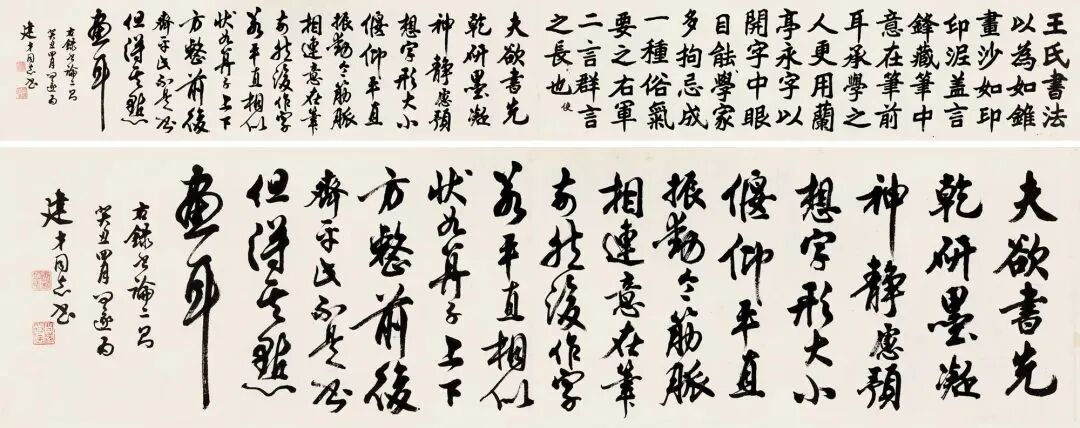 王氏書法
以為如錐
畫沙如印
印泥蓋言
鋒藏筆中
意在筆前
耳承學之
人更用蘭
亭永字以
開字中眼
目能學家
多拘忌成
一種俗氣
要之右軍
二言群言
之長也 使
夫欲書先
乾研墨凝
神靜慮預
想字形大小
偃仰平直
振動令筋脈
相連意在筆
前然後作字
若平直相似
狀如算子上下
方整前後
齊平此不是書
但得其點
畫耳
右錄書論二則
癸丑四月 為
建才同志書
夫欲書先
乾研墨凝
神靜慮預
想字形大小
偃仰平直
振動令筋脈
相連意在筆
前然後作字
若平直相似
狀如算子上下
方整前後
齊平此不是書
但得其點
畫耳
右錄書論二則
癸丑四月 為
建才同志書